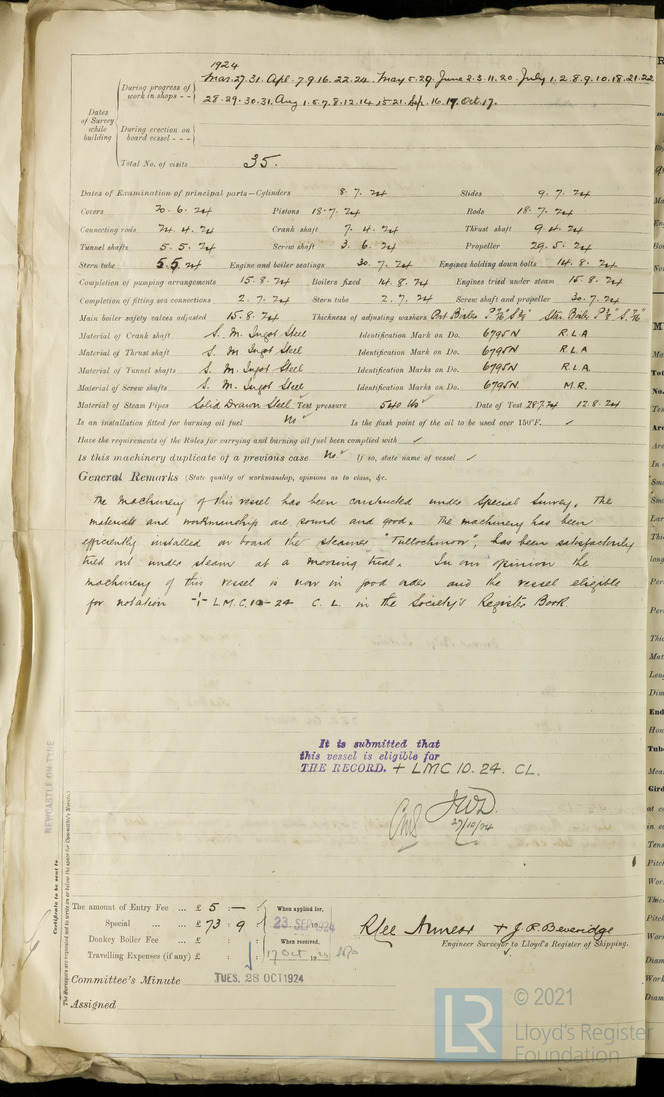 1924
Mar. 27. 31. Apl. 7. 9. 16. 22. 24. May 5. 29. June 2. 3. 11. 20. July 1. 2. 8. 9. 10. 18. 21. 22
During progress of work in shops - -
28. 29. 30. 31. Aug 1. 5. 7. 8. 12. 14. 15. 21. Sep. 16. 17. Oct. 17.
Dates of Survey while building
During erection on board vessel - - -
Total No. of visits 35.
Dates of Examination of principal parts—Cylinders 8. 7. 24 Slides 9. 7. 24
Covers 20. 6. 24 Pistons 18. 7. 24 Rods 18. 7. 24
Connecting rods 24. 4. 24 Crank shaft 7. 4. 24 Thrust shaft 9. 4. 24
Tunnel shafts 5. 5. 24 Screw shaft 3. 6. 24 Propeller 29. 5. 24
Stern tube 5. 5. 24 Engine and boiler seatings 30. 7. 24 Engines holding down bolts 14. 8. 24
Completion of pumping arrangements 15. 8. 24 Boilers fixed 14. 8. 24 Engines tried under steam 15. 8. 24
Completion of fitting sea connections 2. 7. 24 Stern tube 2. 7. 24 Screw shaft and propeller 30. 7. 24
Main boiler safety valves adjusted 15. 8. 24 Thickness of adjusting washers Port Boiler Star. Boiler
Material of Crank shaft S. M. Ingot Steel Identification Mark on Do. 6795N R.L.A
Material of Thrust shaft S. M. Ingot Steel Identification Mark on Do. 6795N R.L.A
Material of Tunnel shafts S. M. Ingot Steel Identification Marks on Do. 6795N R.L.A.
Material of Screw shafts S. M. Ingot Steel Identification Marks on Do. 6795N M.R.
Material of Steam Pipes Solid Drawn Steel ✓ Test pressure 540 lbs ✓ Date of Test 28.7.24 12. 8. 24
Is an installation fitted for burning oil fuel No ✓ Is the flash point of the oil to be used over 150°F. ✓
Have the requirements of the Rules for carrying and burning oil fuel been complied with ✓
Is this machinery duplicate of a previous case No. ✓ If so, state name of vessel ✓
General Remarks (State quality of workmanship, opinions as to class, &c.
The machinery of this vessel has been constructed under Special Survey. The
materials and workmanship are sound and good. The machinery has been
efficiently installed on board the steamer "Tullochmoor", has been satisfactorily
tried out under steam at a mooring trial. In our opinion the
machinery of this vessel is now in good order and the vessel eligible
for notation + L.M.C. 10-24 C. L. in the Society's Register Book.
NEWCASTLE-ON-TYNE
Certificate to be sent to
(The Surveyors are requested not to write on or below the space for Committee's Minute.)
It is submitted that
this vessel is eligible for
THE RECORD. + LMC 10. 24. CL.
27/10/24
The amount of Entry Fee ... £ 5 : — :
Special ... ... £ 73 : 9 :
Donkey Boiler Fee ... £ : :
Travelling Expenses (if any) £ : :
When applied for,
23 SEP 1924
When received,
17 Oct 1924
+ J. R. Beveridge
Engineer Surveyor to Lloyd's Register of Shipping.
Committee's Minute TUES. 28 OCT 1924
Assigned
LR
© 2021
Lloyd's Register
Foundation